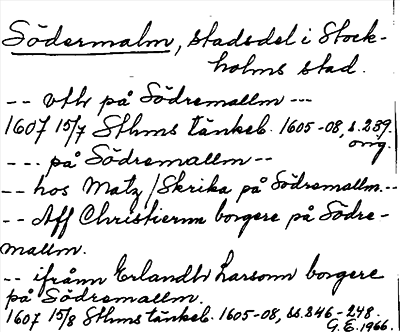 Södermalm, stadsdel i Stock-
holms stad.
-- vthr på Södremallm ---
1607 15/7 Sthms tänkeb. 1605-08, s. 239.
orig.
--- på Södremallm --
-- hos Matz /Skrika på Södremallm.--
-- Aff Christiernn borgere på Södre-
mallm.
-- ifrånn Erlandh Larsonn borgere
på Södremallm.
1607 15/8 Sthms tänkeb. 1605-08, ss. 246-248.
G.E. 1966.